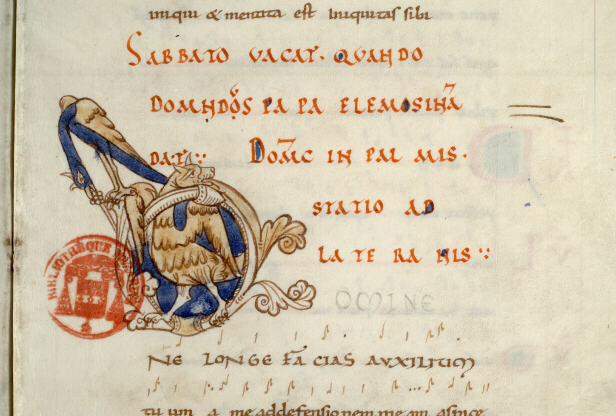 iniqui & mentita est iniquitas sibi
SABBATO VACAT· QUANDO
DOMNDOS PAPA ELEMOSINA
DAT: DOMC IN PALMIS·
STATIO AD
LATERANIS:
D OMINE
NE LONGE FACIAS AUXILIUM
tuum a me ad defensionem meam aspice
BIBLIOTHÈQUE